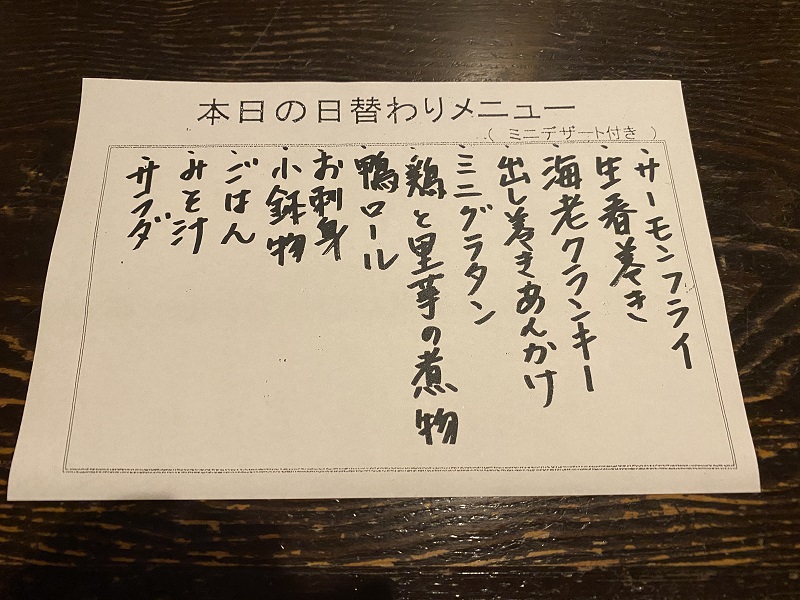 本日の日替わりメニュー
（ ミニデザート付き ）
・サーモンフライ
・生春巻き
・海老クランキー
・出し巻きあんかけ
・ミニグラタン
・鶏と里芋の煮物
・鴨ロール
・お刺身
・小鉢物
・ごはん
・みそ汁
・サラダ